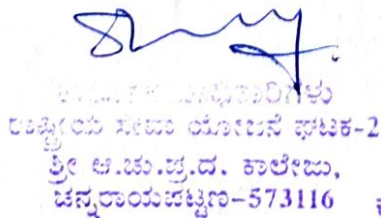 ರಾಷ್ಟ್ರೀಯ ಸೇವಾ ಯೋಜನೆ ಘಟಕ-2
ಶ್ರೀ ಆ.ಚು.ಪ್ರ.ದ. ಕಾಲೇಜು,
ಚನ್ನರಾಯಪಟ್ಟಣ-573116